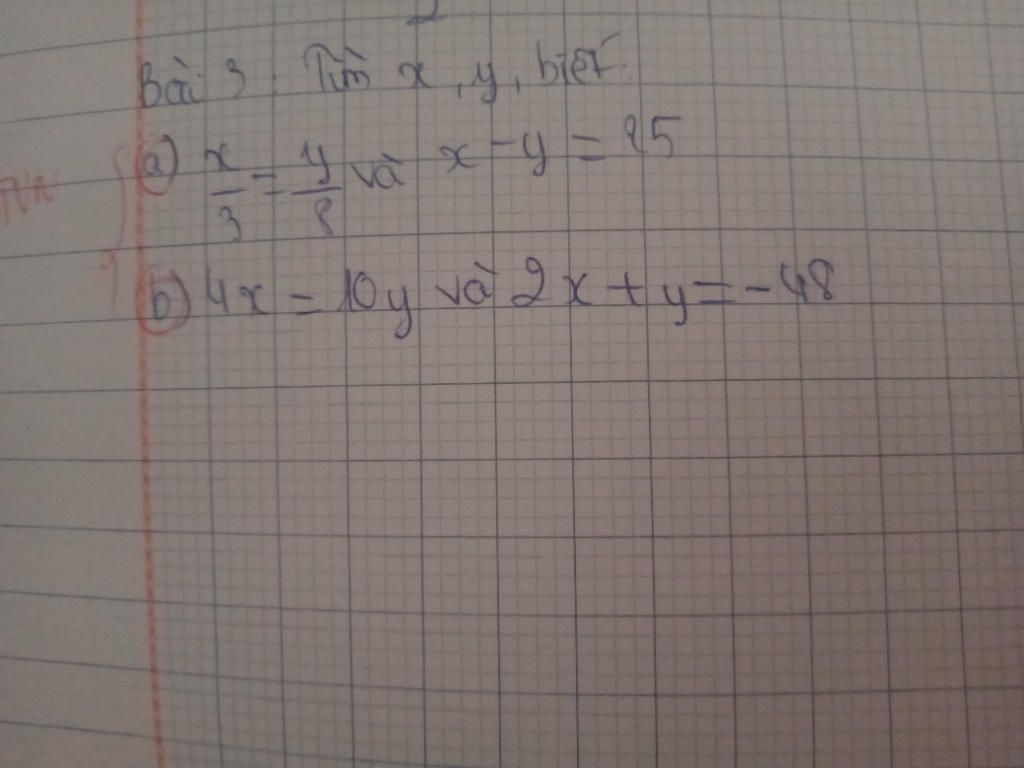 Bài 3: Tìm x, y, biết:
a) x/3 = y/8 và x - y = 25
b) 4x = 10y và 2x + y = -48